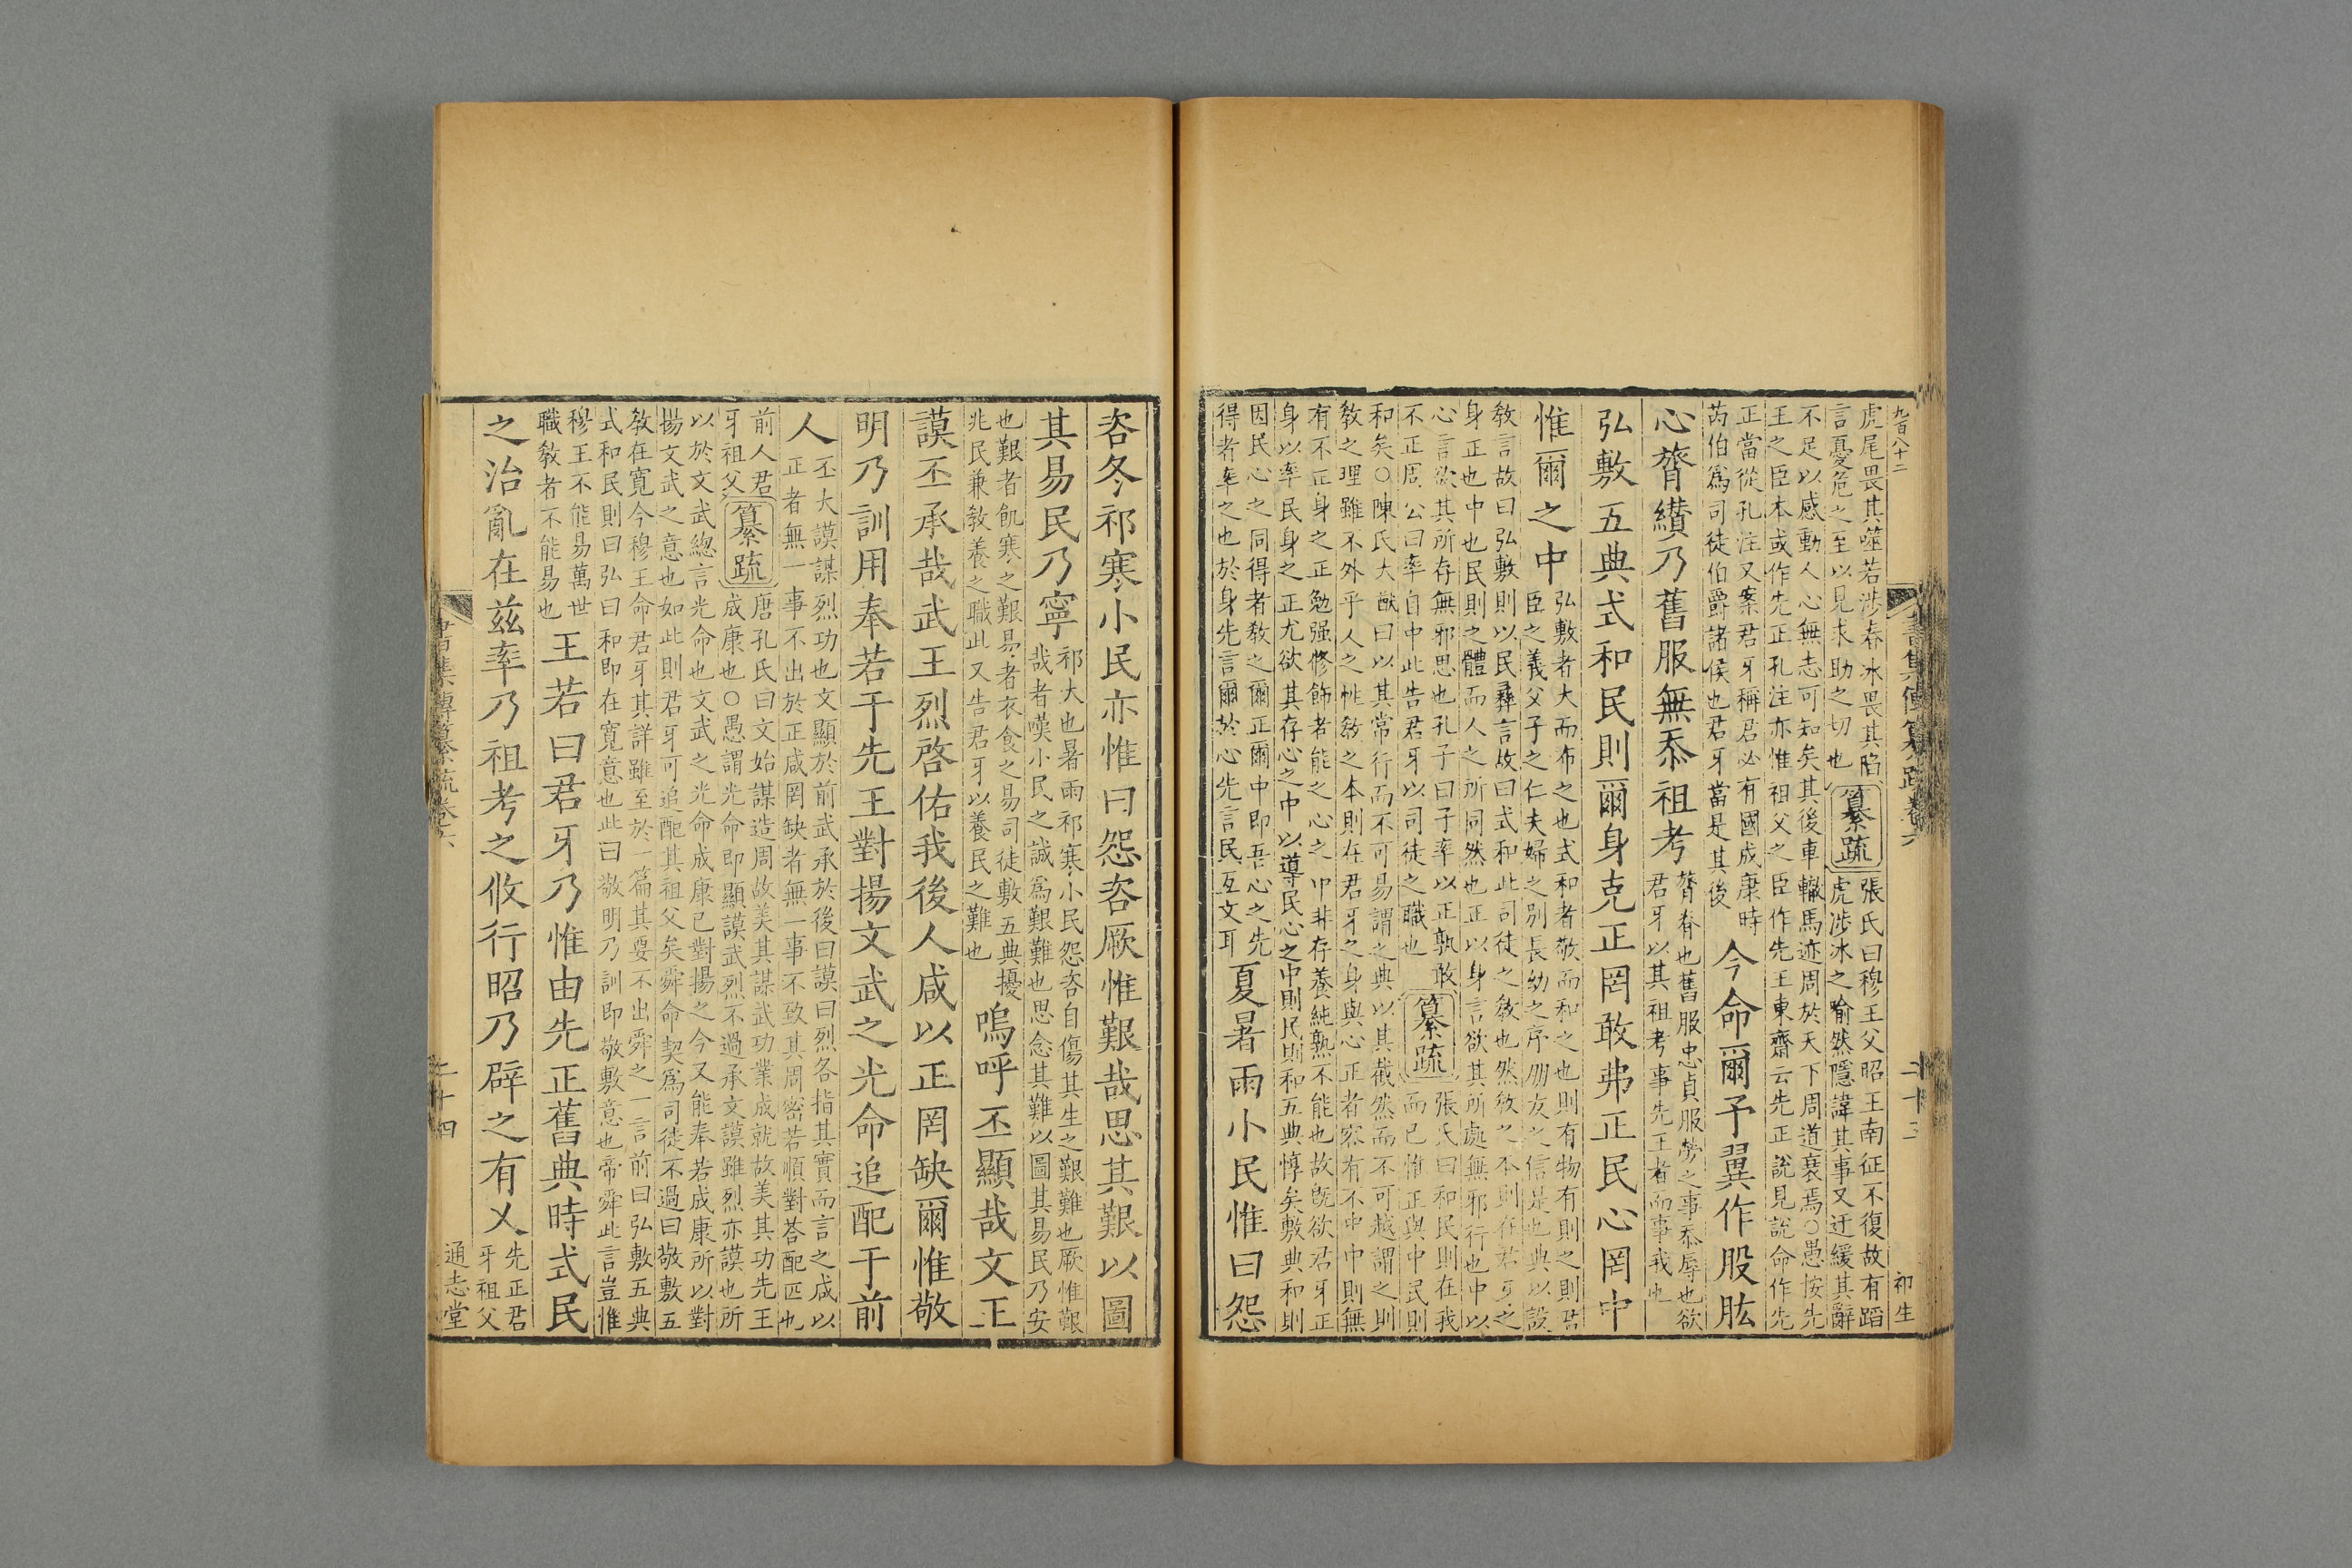 九百八十二
書集傳纂疏卷六
二十三
初生
虎尾畏其噬若涉春冰畏其陷
言憂危之至以見求助之切也
纂疏
張氏曰穆王父昭王南征不復故有蹈
虎涉冰之喻然隱諱其事又迂緩其辭
不足以感動人心無志可知矣其後車轍馬迹周於天下周道衰焉○愚按先
王之臣本或作先正孔注亦惟祖父之臣作先王東齋云先正說見說命作先
正當從孔注又案君牙稱君必有國成康時
芮伯爲司徒伯爵諸侯也君牙當是其後
今命爾予翼作股肱
心膂纘乃舊服無忝祖考
膂脊也舊服忠貞服勞之事忝辱也欲
君牙以其祖考事先王者而事我也
弘敷五典式和民則爾身克正罔敢弗正民心罔中
惟爾之中
弘敷者大而布之也式和者敬而和之也則有物有則之則君
臣之義父子之仁夫婦之別長幼之序朋友之信是也典以設
敎言故曰弘敷則以民彝言故曰式和此司徒之敎也然敎之本則在君牙之
身正也中也民則之體而人之所同然也正以身言欲其所處無邪行也中以
心言欲其所存無邪思也孔子曰子率以正孰敢
不正周公曰率自中此告君牙以司徒之職也
纂疏
張氏曰和民則在我
而已惟正與中民則
和矣○陳氏大猷曰以其常行而不可易謂之典以其截然而不可越謂之則
敎之理雖不外乎人之性敎之本則在君牙之身與心正者容有不中中則無
有不正身之正勉强修飾者能之心之中非存養純熟不能也故旣欲君牙正
身以率民身之正尤欲其存心之中以導民心之中則民則和五典惇矣敷典和則
因民心之同得者敎之爾正爾中即吾心之先
得者率之也於身先言爾於心先言民互文耳
夏暑雨小民惟曰怨
咨冬祁寒小民亦惟曰怨咨厥惟艱哉思其艱以圖
其易民乃寧
祁大也暑雨祁寒小民怨咨自傷其生之艱難也厥惟艱
哉者嘆小民之誠爲艱難也思念其難以圖其易民乃安
也艱者飢寒之艱易者衣食之易司徒敷五典擾
兆民兼敎養之職此又告君牙以養民之難也
嗚呼丕顯哉文王
謨丕承哉武王烈啓佑我後人咸以正罔缺爾惟敬
明乃訓用奉若于先王對揚文武之光命追配于前
人
丕大謨謀烈功也文顯於前武承於後曰謨曰烈各指其實而言之咸以
正者無一事不出於正咸罔缺者無一事不致其周密若順對荅配匹也
前人君
牙祖父
纂疏
唐孔氏曰文始謀造周故美其謀武功業成就故美其功先王
成康也○愚謂光命即顯謨武烈不過承文謨雖烈亦謨也所
以於文武總言光命也文武之光命成康已對揚之今又能奉若成康所以對
揚文武之意也如此則君牙可追配其祖父矣舜命契爲司徒不過曰敬敷五
敎在寬今穆王命君牙其詳雖至於一篇其要不出舜之一言前曰弘敷五典
式和民則曰弘曰和即在寬意也此曰敬明乃訓即敬敷意也帝舜此言豈惟
穆王不能易萬世
職敎者不能易也
王若曰君牙乃惟由先正舊典時式民
之治亂在茲率乃祖考之攸行昭乃辟之有乂
先正君
牙祖父
書集傳纂疏卷六
二十四
通志堂